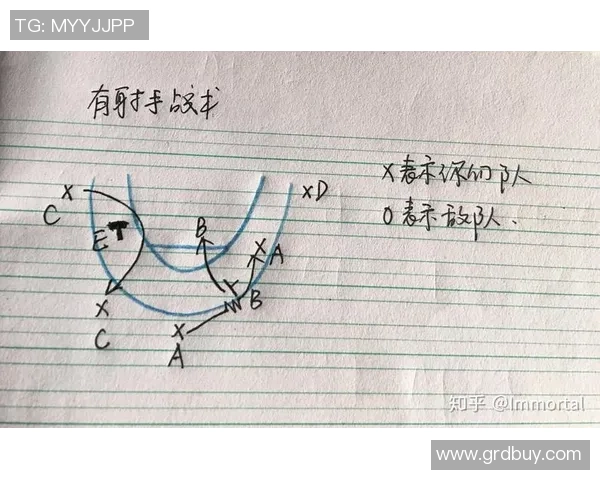 TG: MYYJJPP
有射手战术
X表示你们队
O表示敌队.
X
C
E
B
X
A
XD
X
C
B
X
A
知乎 @Immortal
www.grdbuy.com